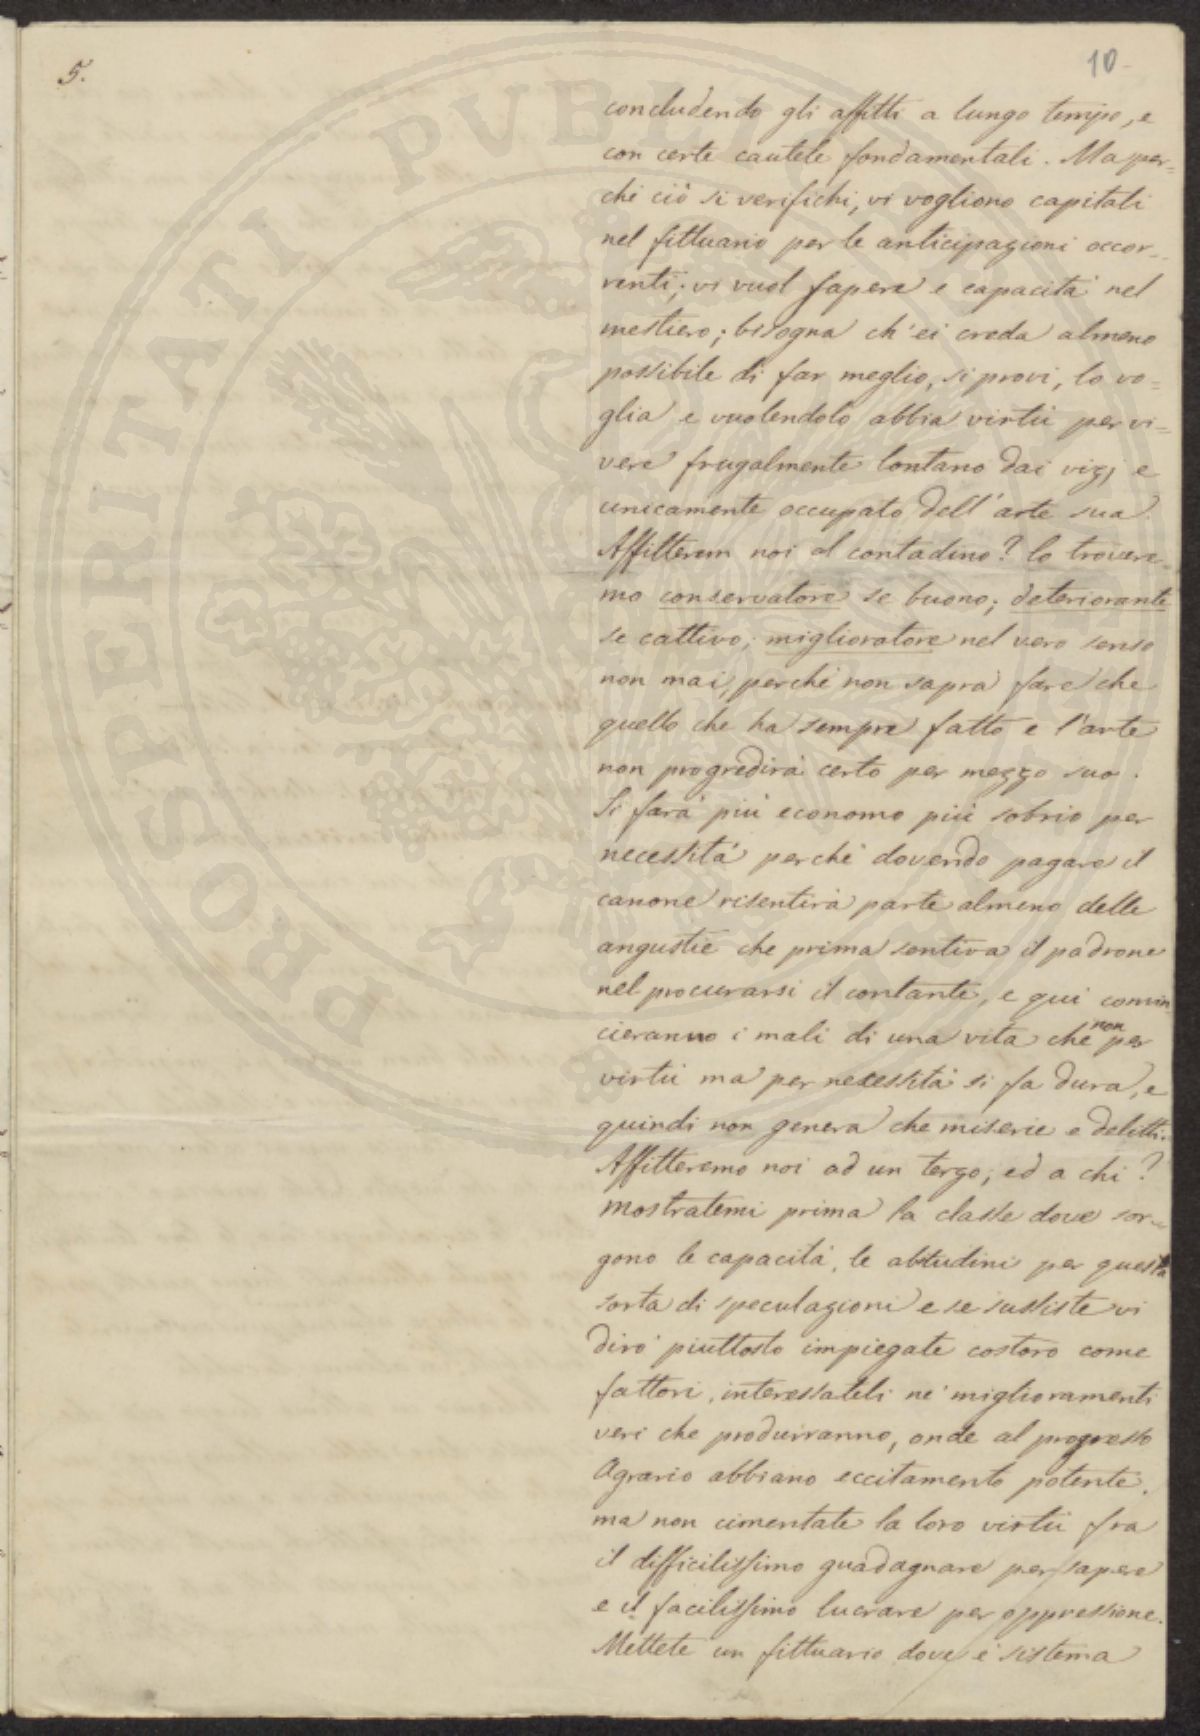 5.
10
concludendo gli affitti a lungo tempo, e
con certe cautele fondamentali. Ma per=
chè ciò si verifichi, vi vogliono capitali
nel fittuario per le anticipazioni occor=
renti; vi vuol sapere e capacità nel
mestiero; bisogna ch'ei creda almeno
possibile di far meglio, si provi, lo vo=
glia e vuolendolo abbia virtù per vi=
vere frugalmente lontano dai vizj e
unicamente occupato dell'arte sua.
Affitterem noi al contadino? lo trovere=
mo conservatore se buono; deteriorante
se cattivo; miglioratore nel vero senso
non mai, perchè non saprà fare che
quello che ha sempre fatto e l'arte
non progredirà certo per mezzo suo.
Si farà più economo più sobrio per
necessità perchè dovendo pagare il
canone risentirà parte almeno delle
angustie che prima sentiva il padrone
nel procurarsi il contante, e qui comin
cieranno i mali di una vita che non per
virtù ma per necessità si fa dura, e
quindi non genera che miserie e delitti.
Affitteremo noi ad un terzo; ed a chi?
mostratemi prima la classe dove sor=
gono le capacità, le abtudini per questa
sorta di speculazioni e se sussiste vi
dirò piuttosto impiegate costoro come
fattori, interessateli ne' miglioramenti
veri che produrranno, onde al progresso
Agrario abbiano eccitamento potente,
ma non cimentate la loro virtù fra
il difficilissimo guadagnare per sapere
e il facilissimo lucrare per oppressione.
Mettete un fittuario dove è sistema
PROSPERITATI PVBLIC